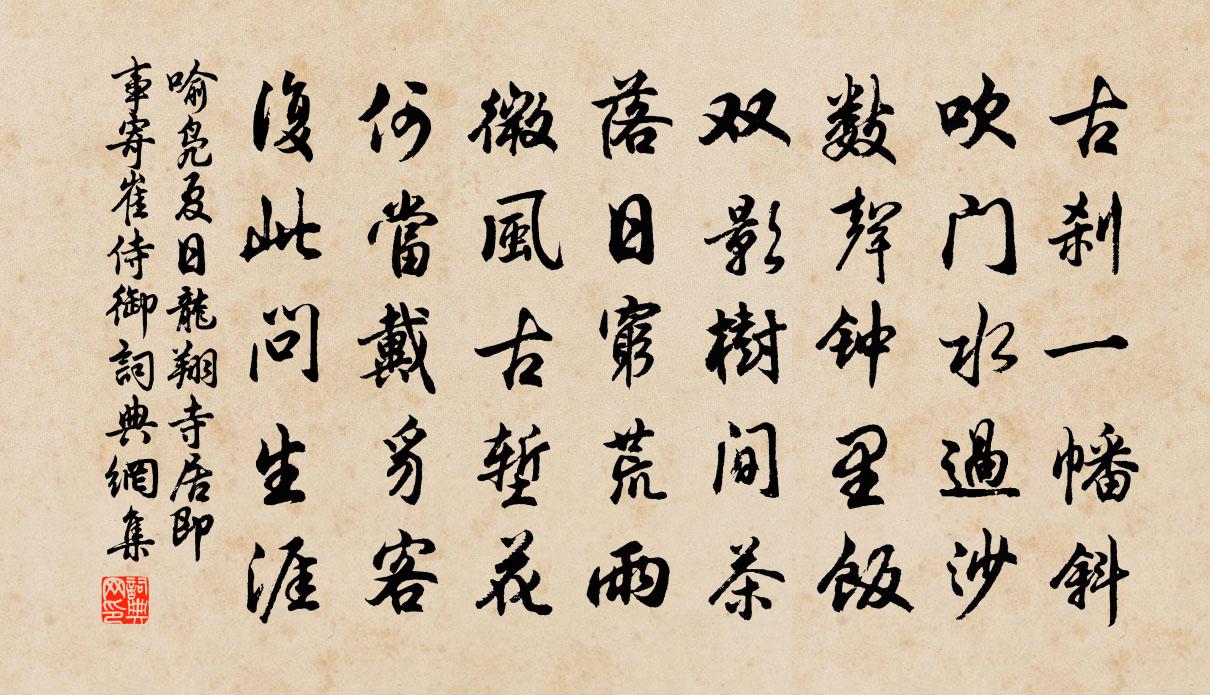 古刹一幡斜
吹门水過沙
數聲钟里飯
双影樹間茶
落日窮荒雨
微風古塹花
何當戴豸客
復此問生涯
喻凫夏日龍翔寺居即
事寄崔侍御詞典網集
詞典网印